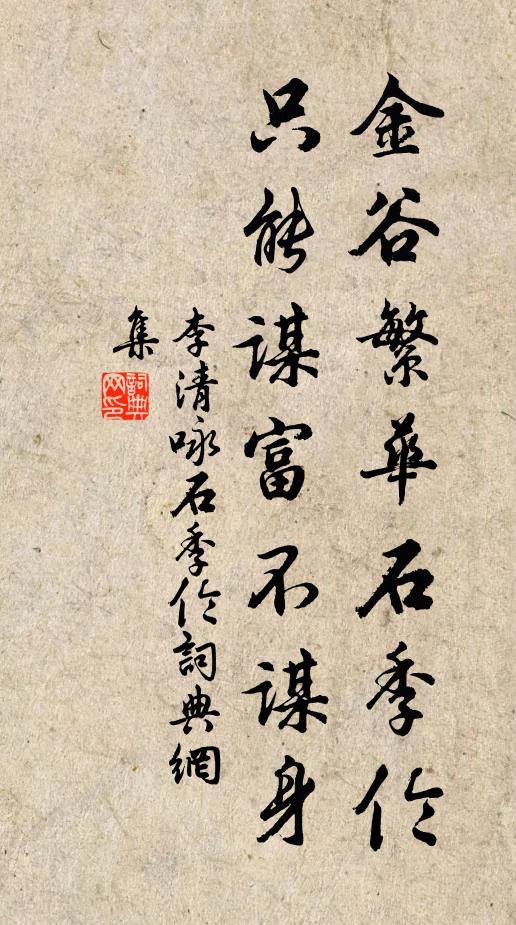 金谷繁華石季伦
只能謀富不謀身
李清咏石季伦詞典網
集
詞典網印